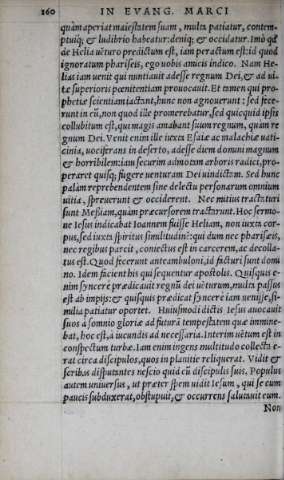 160 IN EVANG. MARCI
quàm aperiat maiestatem suam, multa patiatur, contem-
ptuiq; & ludibrio habeatur: deniq; & occidatur. Imò qđ
de Helia uêturo predictum est, iam peractum est: id quod
ignoratum pharisæis, ego uobis amicis indico. Nam He-
lias iam uenit qui nuntiauit adesse regnum Dei, & ad ui-
tæ superioris pœnitentiam prouocauit. Et tamen qui pro-
phetiæ scientiam iactant, hunc non agnouerunt: sed fece-
runt in eũ, non quod ille promerebatur, sed quicquid ipsis
collubitum est, qui magis amabant suum regnum, quàm re
gnum Dei. Venit enim ille iuxta Esaiæ ac malachiæ uati-
cinia, uociferans in deserto, adesse diem domini magnum
& horribilem: iam securim admotam arboris radici, pro-
peraret quisq; fugere uenturam Dei uindictam. Sed hunc
palàm reprehendentem sine delectu personarum omnium
uitia, spreuerunt & occiderent. Nec mitius tracturi
sunt Messiam, quàm præcursorem tractarunt. Hoc sermo-
ne Iesus indicabat Ioannem fuisse Heliam, non iuxta cor-
pus, sed iuxta spiritus similitudinẽ: qui dum nec pharisæis,
nec regibus parcit, coniectus est in carcerem, ac decolla-
tus est. Quod fecerunt anteambuloni, id facturi sunt domi
no. Idem facient his qui sequentur apostolis. Quisquis e-
nim syncerè prædicauit regnũ dei uêturum, multa passus
est ab impijs: & quisquis prædicat syncerè iam uenisse, si-
milia patiatur oportet. Huiusmodi dictis Iesus auocauit
suos à somnio gloriæ ad futurā tempestatem quæ immine-
bat, hoc est, à iucundis ad necessaria. Interim uêtum est in
conspectum turbæ. Iam enim ingens multitudo collecta e-
rat circa discipulos, quos in planitie reliquerat. Vidit &
scribas disputantes nescio quid cũ discipulis suis. Populus
autem uniuersus, ut præter spem uidit Iesum, qui se cum
paucis subduxerat, obstupuit, & occurrens salutauit eum.
Non